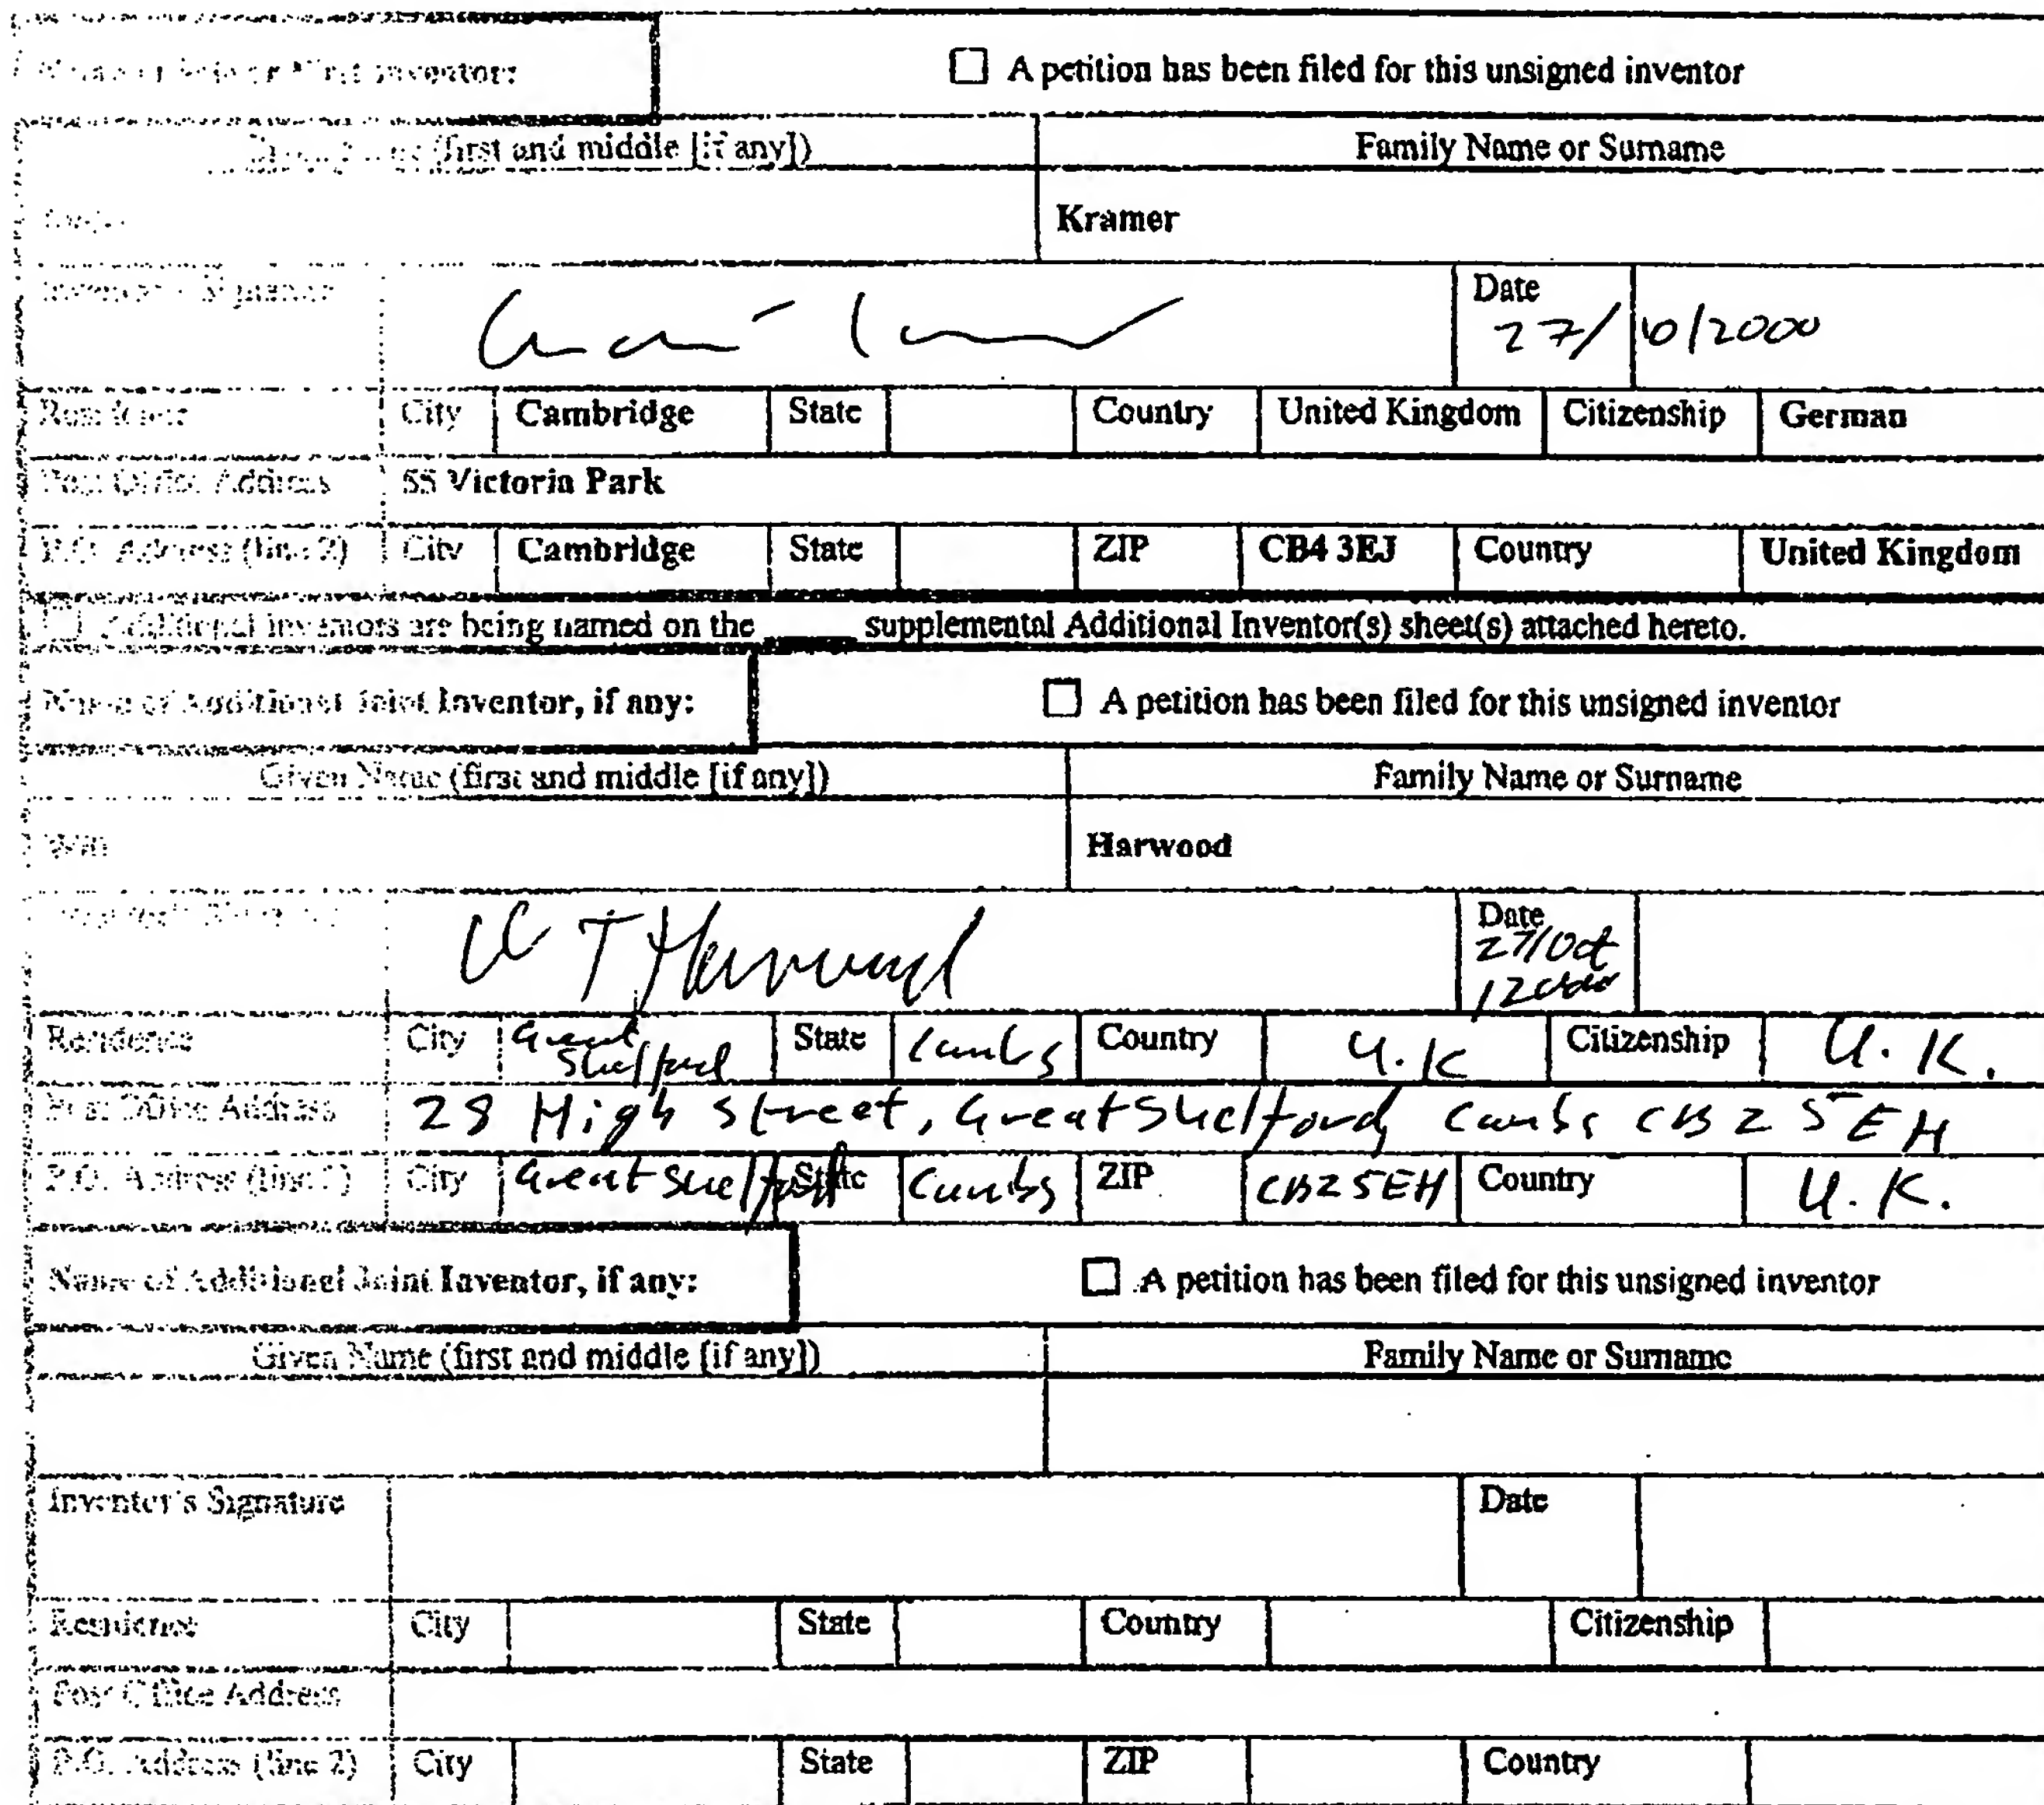 ☐ A petition has been filed for this unsigned inventor
(first and middle [if any]) Family Name or Surname
Kramer
Date
27/10/2000
Residence City Cambridge State Country United Kingdom Citizenship German
Post Office Address 55 Victoria Park
P.O. Address (line 2) City Cambridge State ZIP CB4 3EJ Country United Kingdom
☐ Additional inventors are being named on the ______ supplemental Additional Inventor(s) sheet(s) attached hereto.
Name of Additional Joint Inventor, if any: ☐ A petition has been filed for this unsigned inventor
Given Name (first and middle [if any]) Family Name or Surname
Will Harwood
W T Harwood Date
27/Oct
/2000
Residence City Great Shelford State Cambs Country U.K Citizenship U.K.
Post Office Address 28 High Street, Great Shelford, Cambs CB2 5EH
P.O. Address (line 2) City Great Shelford State Cambs ZIP CB2 5EH Country U.K.
Name of Additional Joint Inventor, if any: ☐ A petition has been filed for this unsigned inventor
Given Name (first and middle [if any]) Family Name or Surname
Inventor's Signature Date
Residence City State Country Citizenship
Post Office Address
P.O. Address (line 2) City State ZIP Country